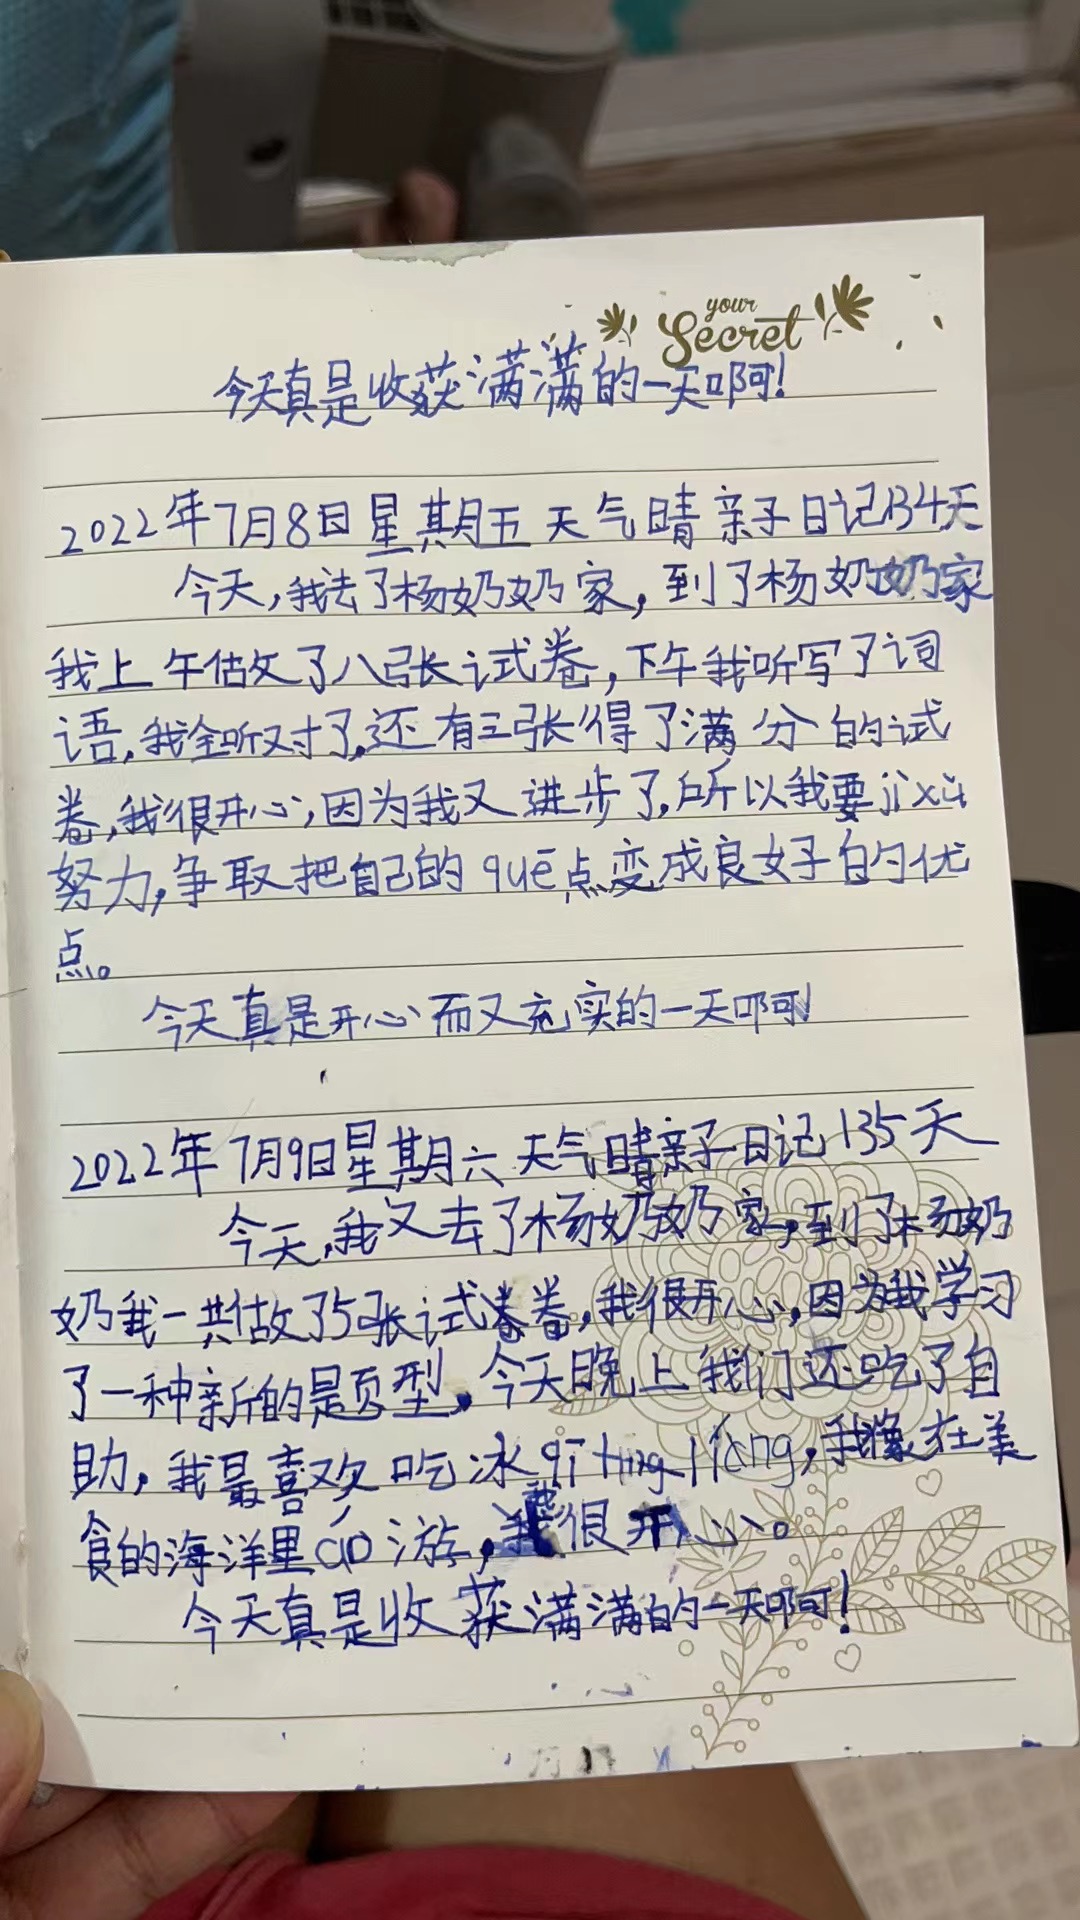 your
Secret
今天真是收获满满的一天啊!
2022年7月8日星期五天气晴亲子日记134天
今天,我去了杨奶奶家,到了杨奶奶家
我上午做了八张试卷,下午我听写了词
语,我全听对了,还有三张得了满分的试
卷,我很开心,因为我又进步了,所以我要jì xù
努力,争取把自己的quē点变成良好的优
点。
今天真是开心而又充实的一天啊!
2022年7月9日星期六天气晴亲子日记135天
今天,我又去了杨奶奶家,到了杨奶
奶我一共做了5张试卷卷,我很开心,因为我学习
了一种新的题型。今天晚上我们还吃了自
助,我最喜欢吃冰qī ling,我像在美
食的海洋里áo游,我很开心。
今天真是收获满满的一天啊!